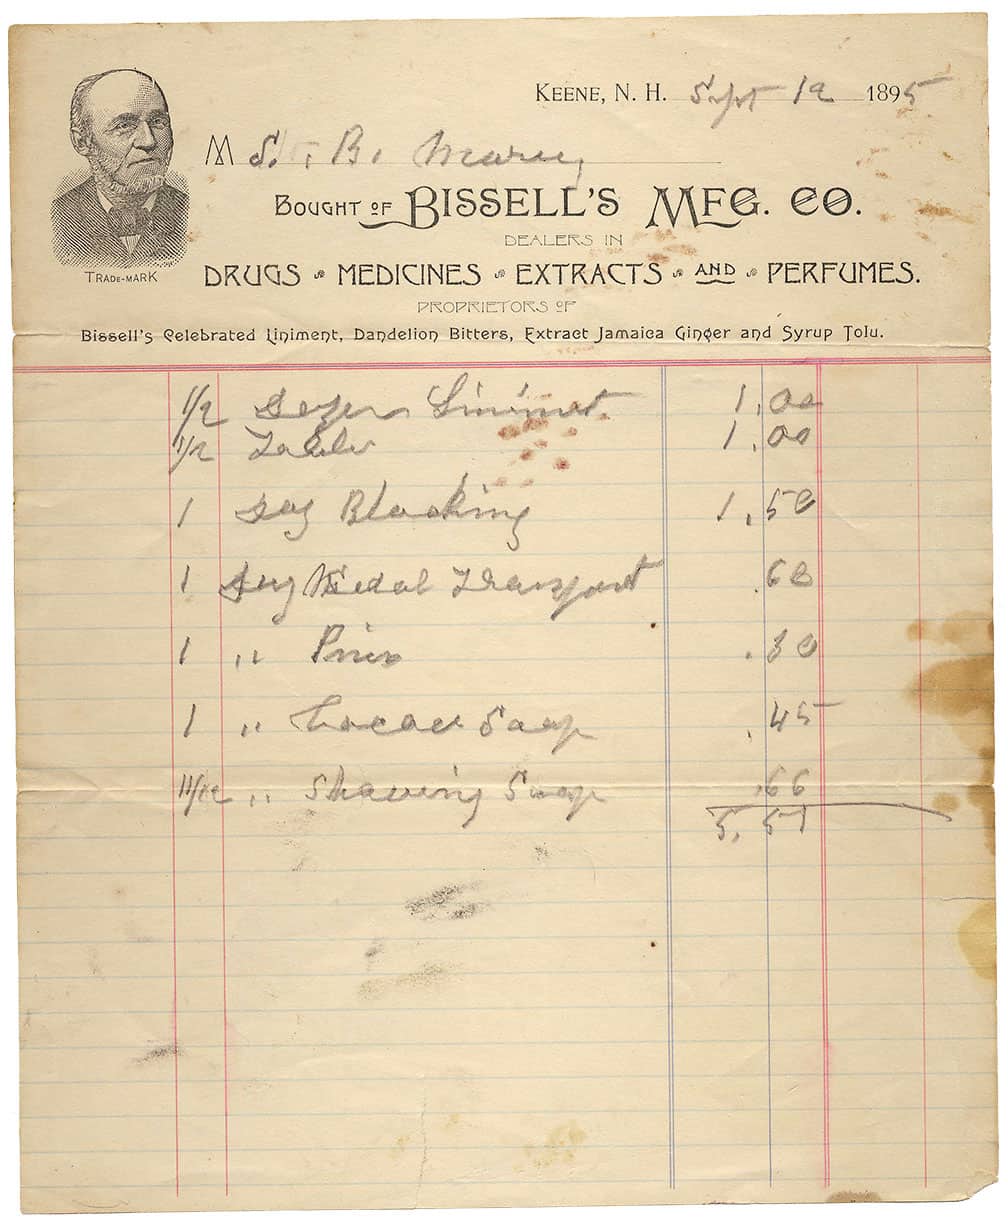 KEENE, N. H. Sept 12 1895
M S. B.
BOUGHT OF BISSELL'S MFG. CO.
DEALERS IN
DRUGS MEDICINES EXTRACTS AND PERFUMES.
TRADE-MARK
PROPRIETORS OF
Bissell's Celebrated Liniment, Dandelion Bitters, Extract Jamaica Ginger and Syrup Tolu.
1/2 Liniment 1.00
1/2 1.00
1 Doz Blacking 1.50
1 Medal .60
1 " .30
1 " Soap .45
11/12 " Shaving Soap .66
5.51